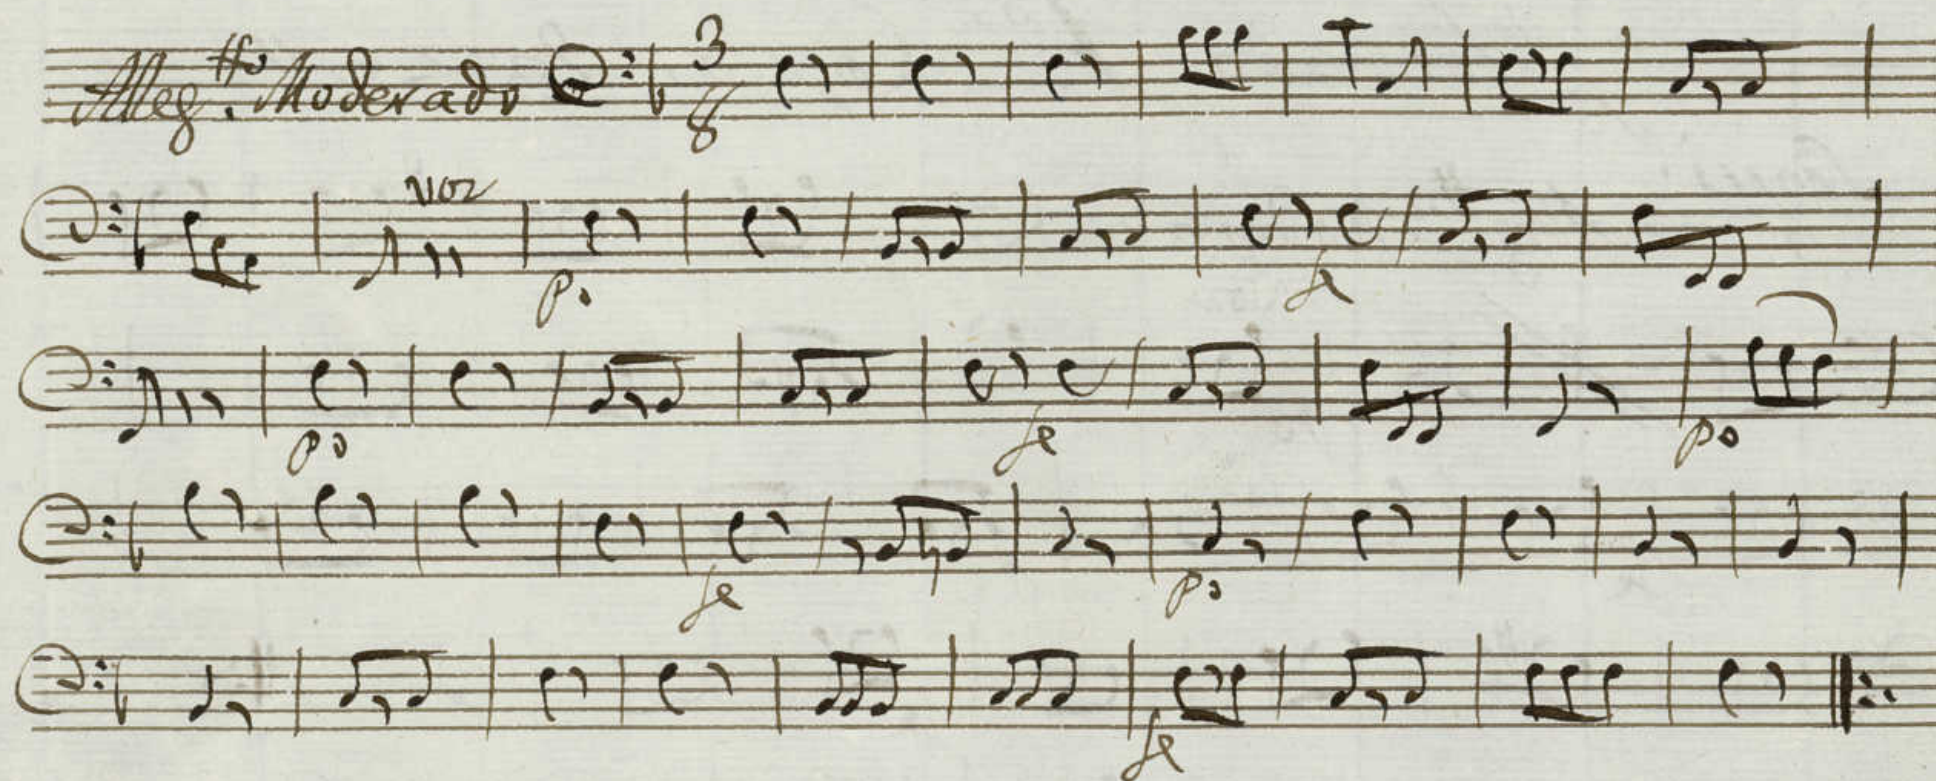 Alleg.tto Moderado 3/8
voz
p. fe
po fe po
fe po
fe